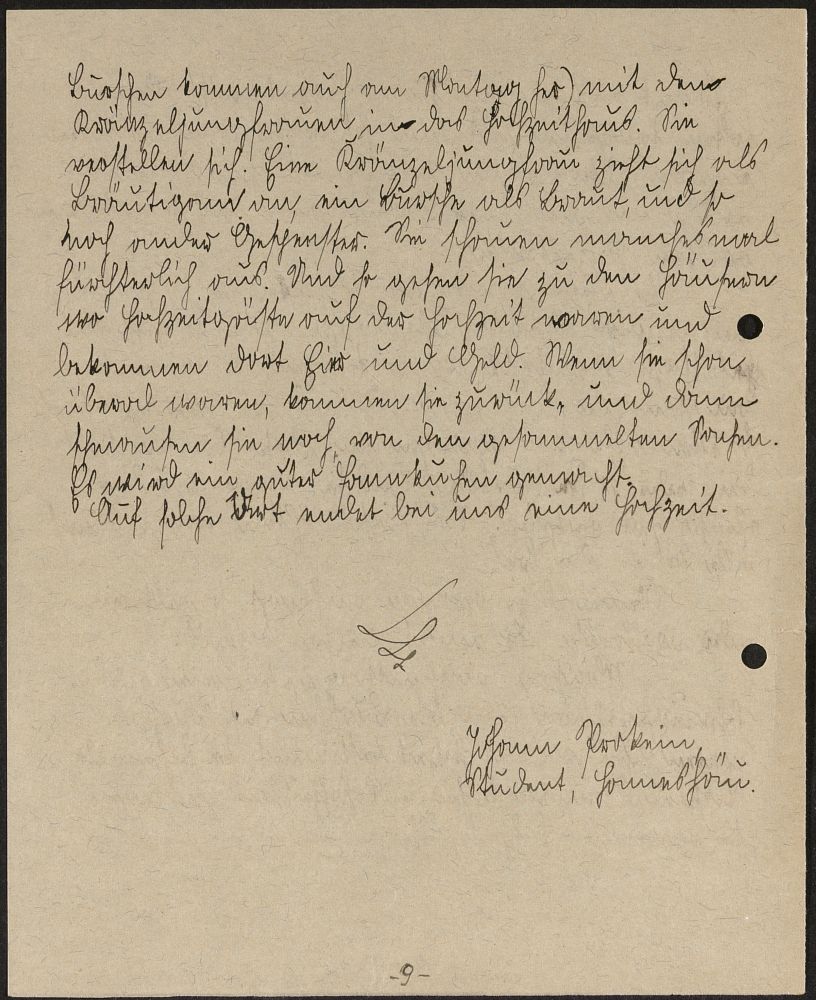 Burschen kommen auch am Montag her) mit den
Kränzeljungfrauen in das Hochzeithaus. Sie
verstellen sich. Eine Kränzeljungfrau zieht sich als
Bräutigam an, ein Bursche als Braut, und so
noch ander Gespenster. Sie schauen manchesmal
fürchterlich aus. Und so gehen sie zu den Häusern
wo Hochzeitgäste auf der Hochzeit waren und
bekommen dort Eier und Geld. Wenn sie schon
überal waren, kommen sie zurück, und dann
schmausen sie noch von den gesammelten Sachen.
Es wird ein guter Pfannkuchen gemacht.
Auf solche Art endet bei uns eine Hochzeit.
Johann
Student,
-9-